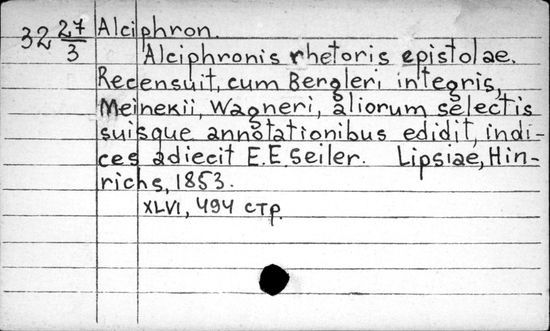 32 27/3 Alciphron.
Alciphronis rhetoris epistolae.
Recensuit, cum Bergleri integris,
Meinekii, Wagneri, aliorum selectis
suisque annotationibus edidit, indi-
ces adiecit E.E.Seiler. Lipsiae, Hin-
richs, 1853.
XLVI, 494 стр.